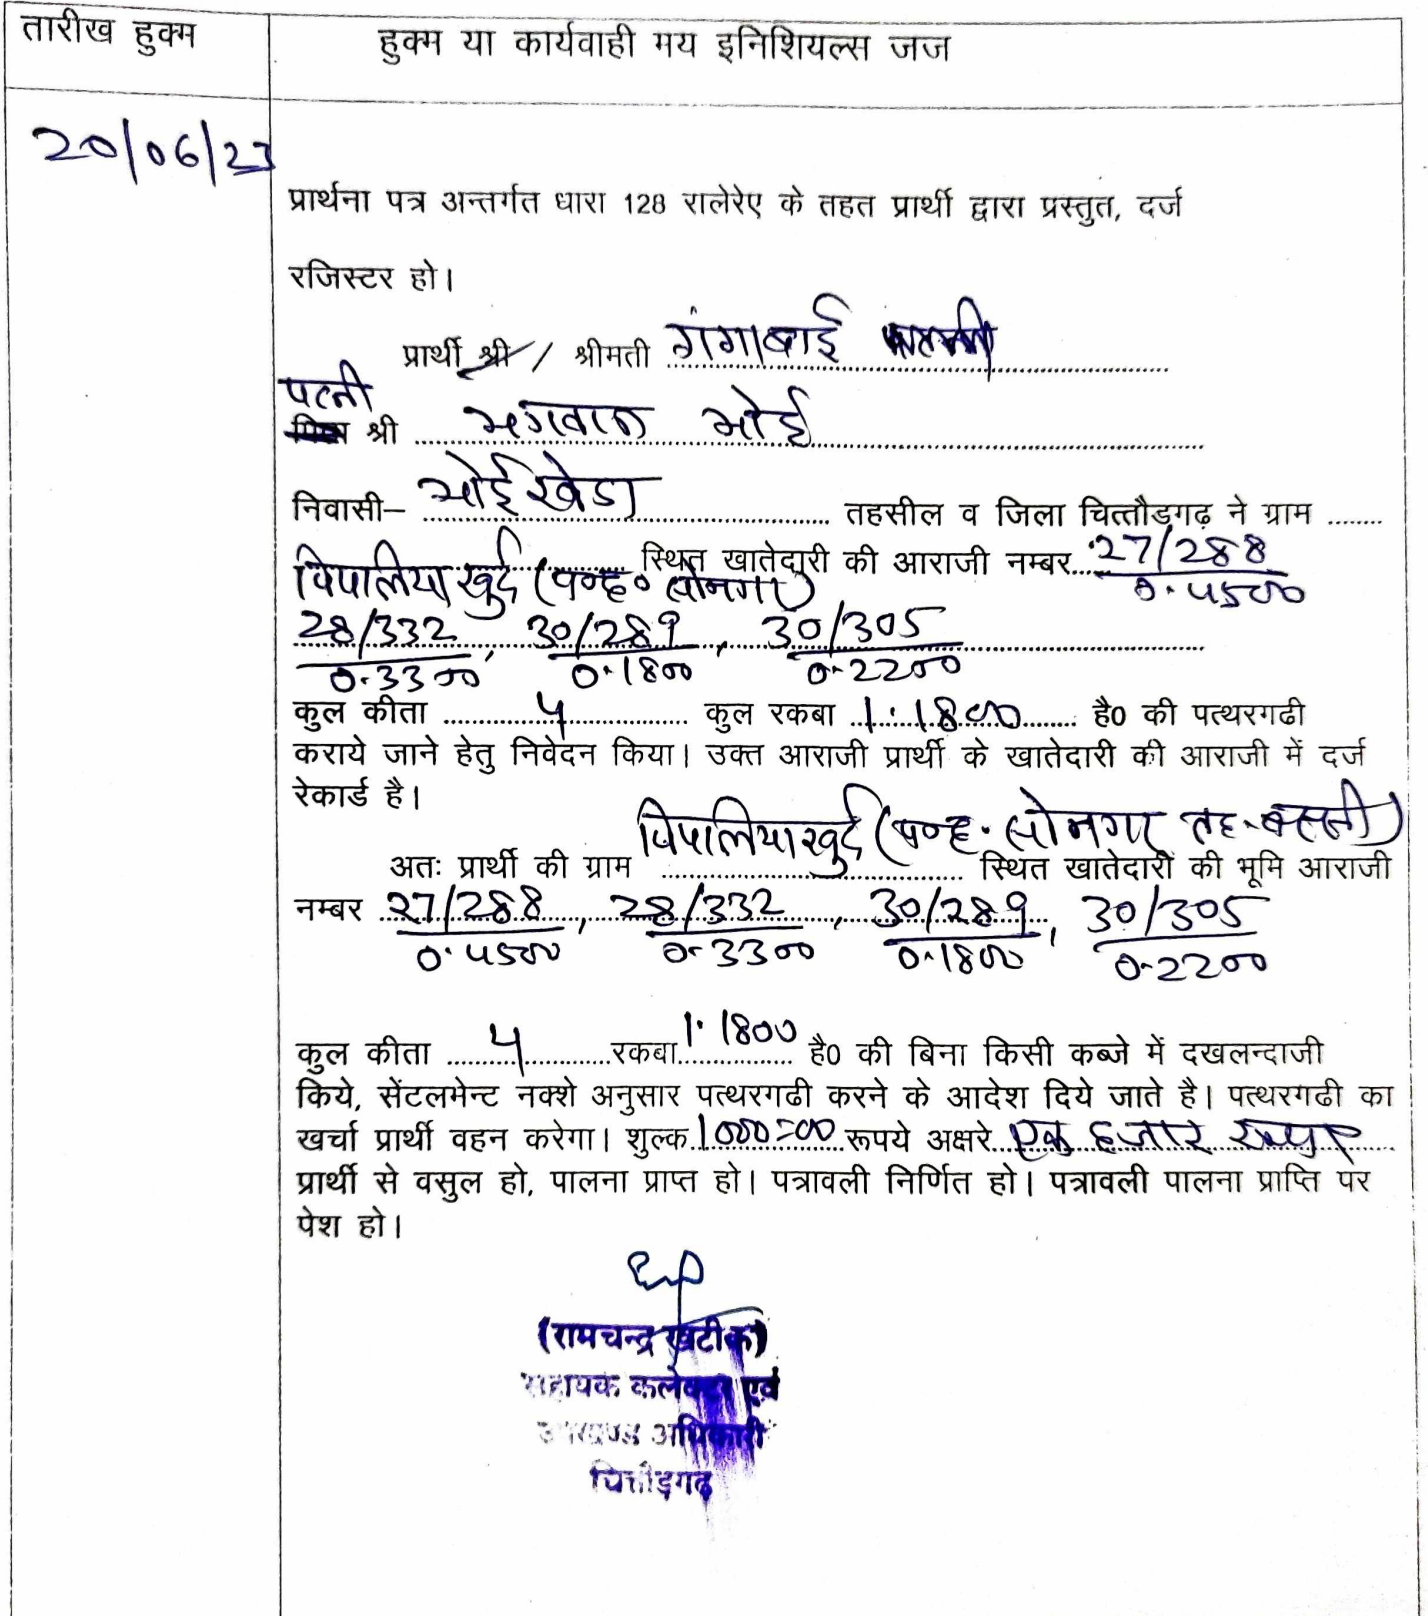 तारीख हुक्म
हुक्म या कार्यवाही मय इनिशियल्स जज
20/06/23
प्रार्थना पत्र अन्तर्गत धारा 128 रालेरेए के तहत प्रार्थी द्वारा प्रस्तुत, दर्ज
रजिस्टर हो।
प्रार्थी श्री / श्रीमती गंगाबाई
पत्नी
श्री भगवान भोई
निवासी– भोईखेडा तहसील व जिला चित्तौड़गढ़ ने ग्राम ........
स्थित खातेदारी की आराजी नम्बर 27/288
पिपालिया खुर्द (प०ह० सोनगर) 0.4500
28/332, 30/289, 30/305
0.3300 0.1800 0.2200
कुल कीता 4 कुल रकबा 1.1800 है0 की पत्थरगढी
कराये जाने हेतु निवेदन किया। उक्त आराजी प्रार्थी के खातेदारी की आराजी में दर्ज
रेकार्ड है।
पिपालिया खुर्द (प०ह. सोनगर तह. बस्सी)
अतः प्रार्थी की ग्राम स्थित खातेदारी की भूमि आराजी
नम्बर 27/288, 28/332, 30/289, 30/305
0.4500 0.3300 0.1800 0.2200
कुल कीता 4 रकबा 1.1800 है0 की बिना किसी कब्जे में दखलन्दाजी
किये, सेंटलमेन्ट नक्शे अनुसार पत्थरगढी करने के आदेश दिये जाते है। पत्थरगढी का
खर्चा प्रार्थी वहन करेगा। शुल्क 1000=00 रूपये अक्षरे एक हजार रूपए
प्रार्थी से वसुल हो, पालना प्राप्त हो। पत्रावली निर्णित हो। पत्रावली पालना प्राप्ति पर
पेश हो।
(रामचन्द्र खटीक)
सहायक कलेक्टर एवं
उपखण्ड अधिकारी
चित्तौड़गढ़